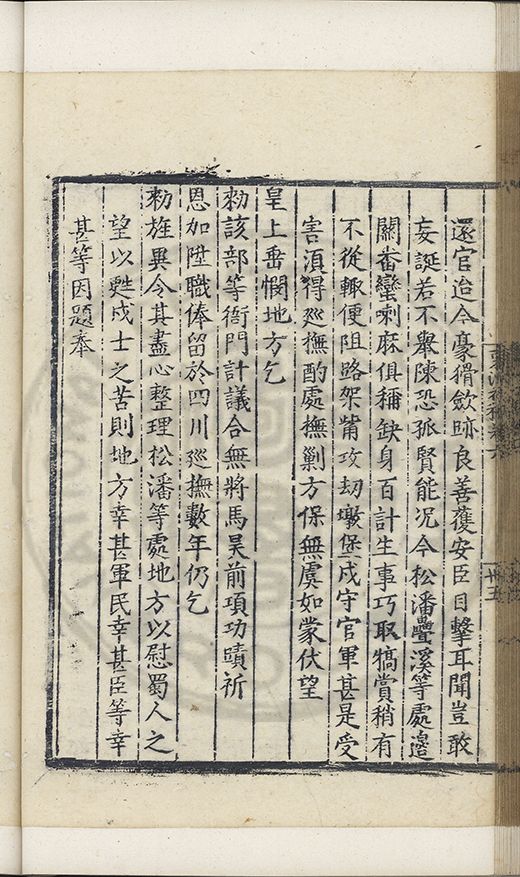 還官迨今豪猾斂跡良善獲安臣目擊耳聞豈敢
妄誕若不舉陳恐孤賢能况今松潘疊溪等處邉
關畨蠻喇麻俱稱缺身百計生事巧取犒賞稍有
不從輙便阻路架箭攻刼墩堡戍守官軍甚是受
害湏得廵撫酌處撫剿方保無虞如蒙伏望
皇上垂憫地方乞
勑該部等衙門計議合無將馬昊前項功蹟祈
恩加陞職俸留於四川廵撫數年仍乞
勑旌異令其盡心整理松潘等處地方以慰蜀人之
望以甦戍士之苦則地方幸甚軍民幸甚臣等幸
甚等因題奉